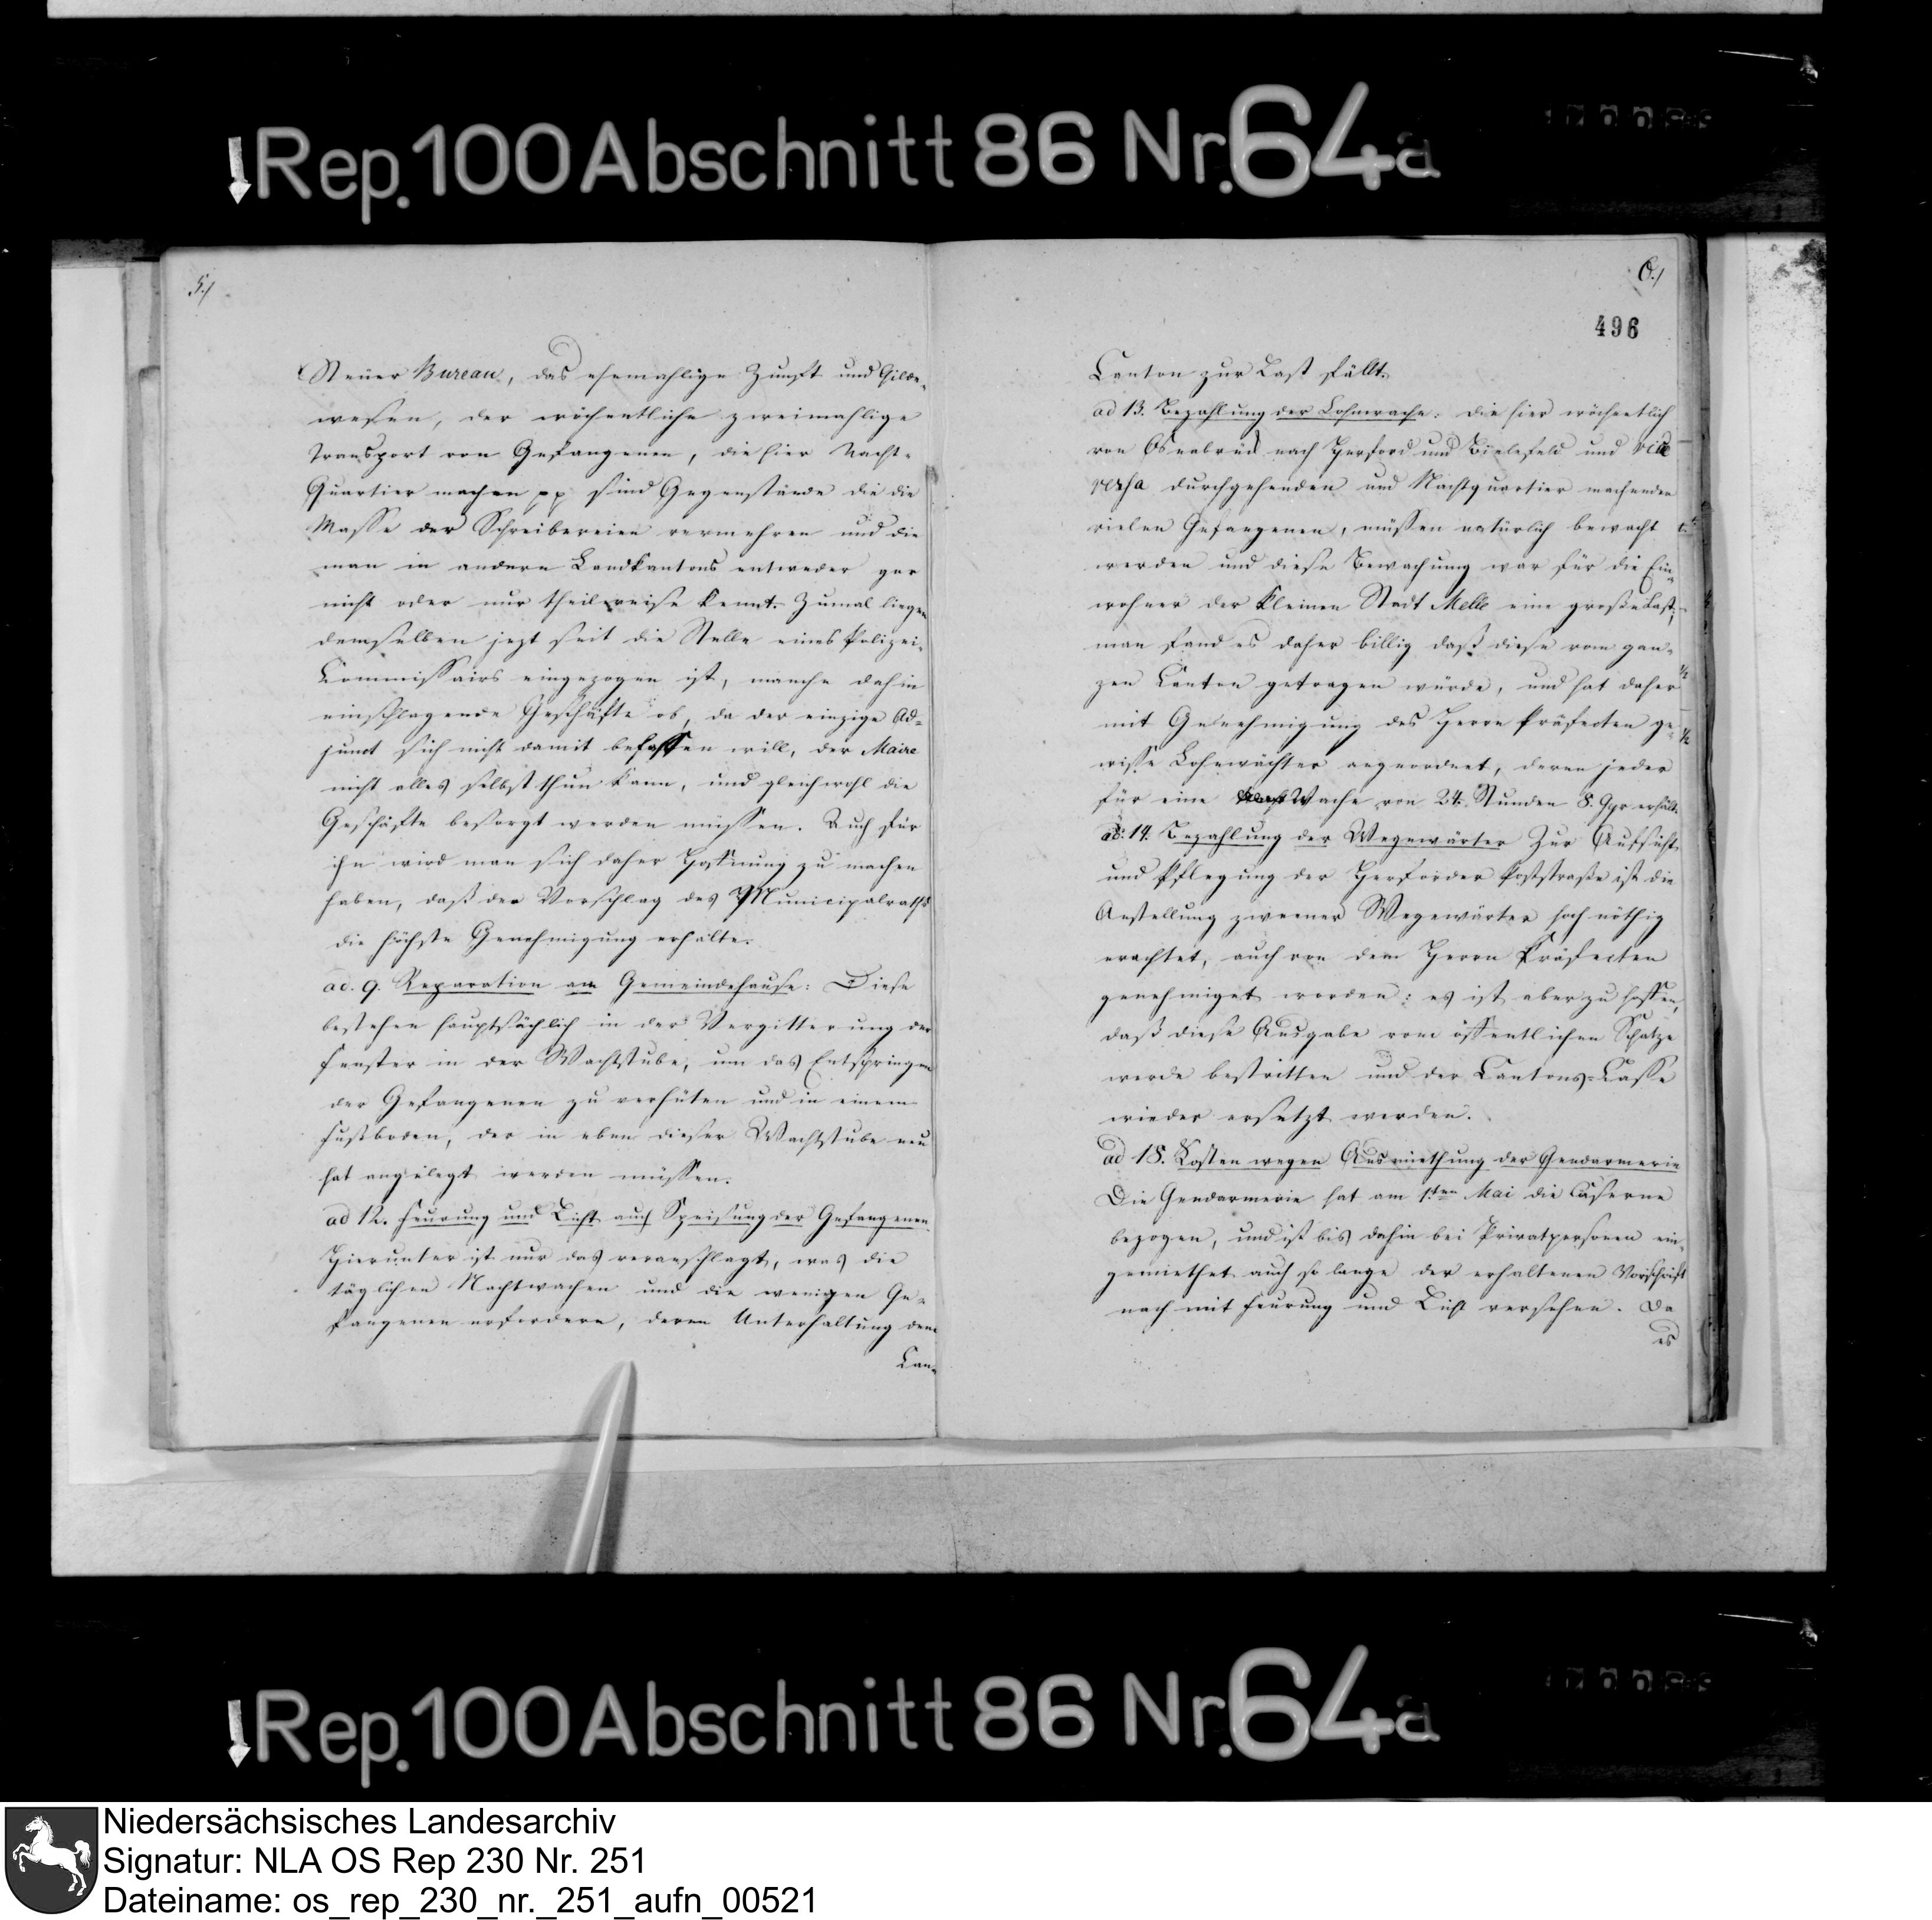 Rep. 100 Abschnitt 86 Nr. 64a
5./
Steuer Bureau, das ehemahlige Zunft und Gilde-
wesen, der wöchentliche zweimahlige
Transport von Gefangenen, die hier Nacht-
Quartier machen pp sind Gegenstände die die
Masse der Schreibereien vermehren und die
man in andern Landkantons entweder gar
nicht oder nur theilweise kennt. Zumal liegen
demselben jezt seit die Stelle eines Polizei-
Commissairs eingezogen ist, manche dahin
einschlagende Geschäfte ob, da der einzige Ad-
junct sich nicht damit befassen will, der Maire
nicht alles selbst thun kann, und gleichwohl die
Geschäfte besorgt werden müssen. Auch für
ihn wird man sich daher Hoffnung zu machen
haben, daß der Vorschlag des Municipalraths
die höchste Genehmigung erhalte.
ad. 9. Reparation am Gemeindehause: Diese
bestehen hauptsächlich in der Vergitterung der
Fenster in der Wachtstube, um das Entspringen
der Gefangenen zu verhüten und in einem
Fußboden, der in eben dieser Wachtstube neu
hat angelegt werden müssen.
ad 12. Feurung und Licht auch Speisung der Gefangenen
Hierunter ist nur das veranschlagt, was die
täglichen Nachtwachen und die wenigen Ge-
fangenen erfordern, deren Unterhaltung dem
Can-
6./
496
Canton zur Last fällt.
ad 13. Bezahlung der Lohnwache: die hier wöchentlich
von Osnabrück nach Herford und Bielefeld und vice
versa durchgehenden und Nachtquartier machenden
vielen Gefangenen, müssen natürlich bewacht
werden und diese Bewachung war für die Ein-
wohner der kleinen Stadt Melle eine große Last,
man fand es daher billig daß diese vom gan-
zen Canton getragen würde, und hat daher
mit Genehmigung des Herrn Präfecten ge-
wisse Lohnwächter angeordnet, deren jeder
für eine Wache von 24. Stunden 8. Ggr erhält.
ad. 14. Bezahlung der Wegewärter Zur Aufsicht
und Pflegung der Herforder Poststraße ist die
Anstellung zweener Wegewärter hoch nöthig
erachtet, auch von dem Herrn Präfecten
genehmiget worden: es ist aber zu hoffen,
daß diese Ausgabe vom öffentlichen Schatze
werde bestritten und der Cantons-Casse
wieder ersetzt werden.
ad 18. Kosten wegen Ausmiethung der Gendarmerie
Die Gendarmerie hat am 1ten Mai die Caserne
bezogen, und ist bis dahin bei Privatpersonen ein-
gemiethet auch so lange der erhaltenen Vorschrift
nach mit Feurung und Licht versehen. Da
es
Rep. 100 Abschnitt 86 Nr. 64a
Niedersächsisches Landesarchiv
Signatur: NLA OS Rep 230 Nr. 251
Dateiname: os_rep_230_nr._251_aufn_00521